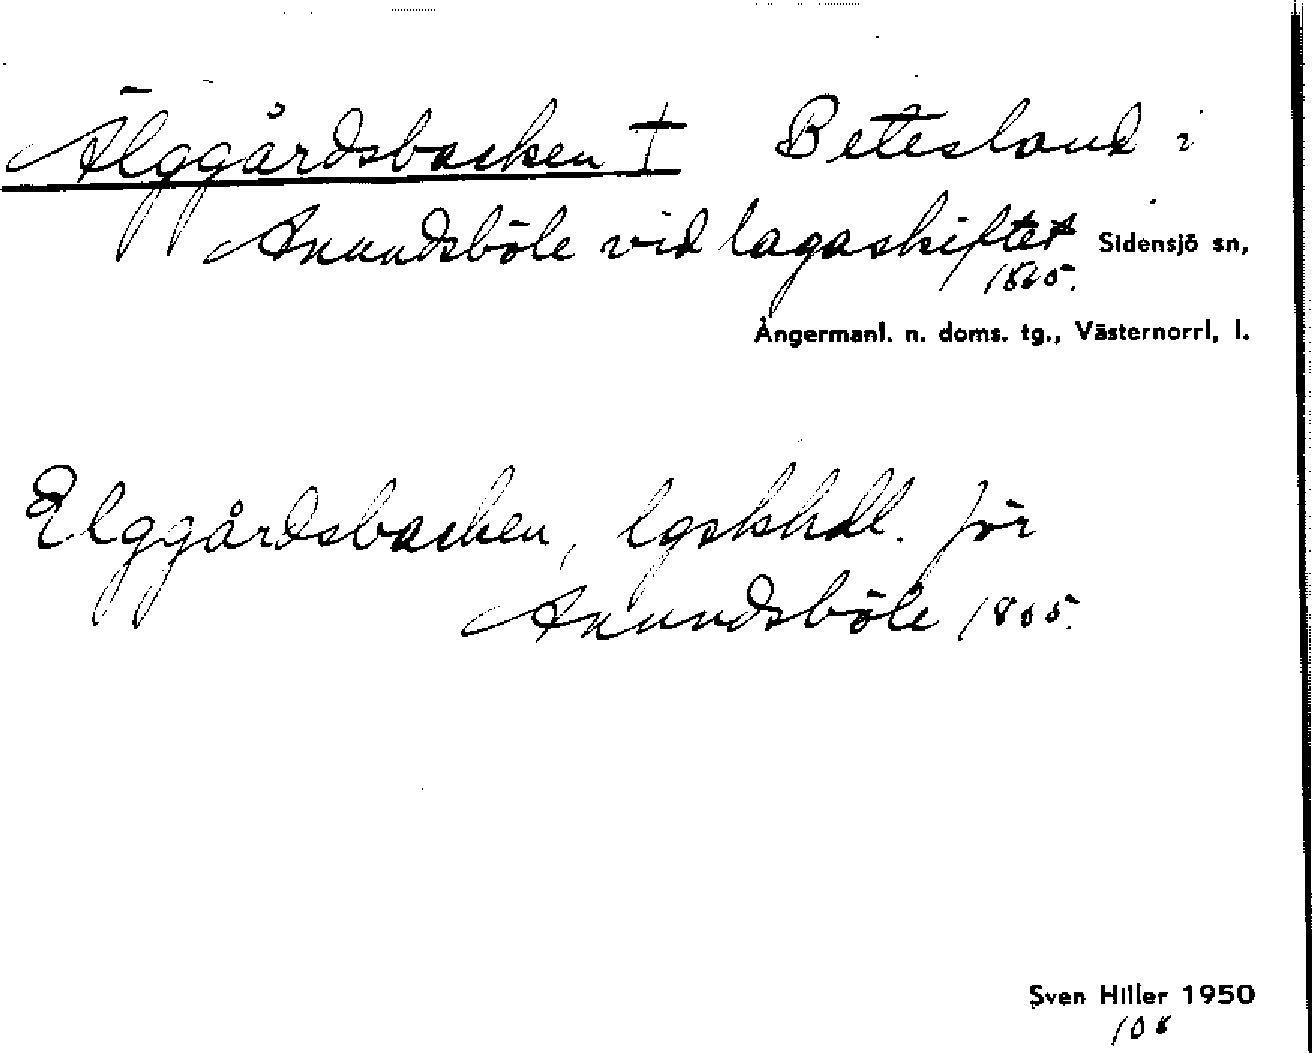 Älggårdsbacken † Betesland i
Anundsböle vid lagaskiftet Sidensjö sn,
1865.
Ångermanl. n. doms. tg., Västernorrl. l.
Elggårdsbacken, lgskhdl. för
Anundsböle 1865.
Sven Hiller 1950